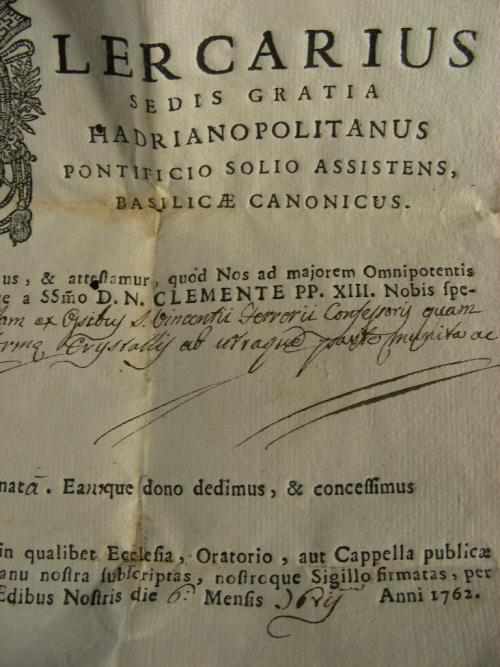 LERCARIUS
SEDIS GRATIA
HADRIANOPOLITANUS
PONTIFICIO SOLIO ASSISTENS,
BASILICÆ CANONICUS.
us, & atteſtamur, quòd Nos ad majorem Omnipotentis
e a SSm̃o D. N. CLEMENTE PP. XIII. Nobis ſpe-
am ex Oſsibus S. Vincentii Ferrerii Confeſsoris quam
Crystallis ab utraque parte munita ac
natâ. Eamque dono dedimus, & conceſſimus
in qualibet Eccleſia, Oratorio, aut Cappella publicæ
anu noſtra ſubſcriptas, noſtroque Sigillo firmatas, per
Edibus Noſtris die 6ª Menſis Anni 1762.